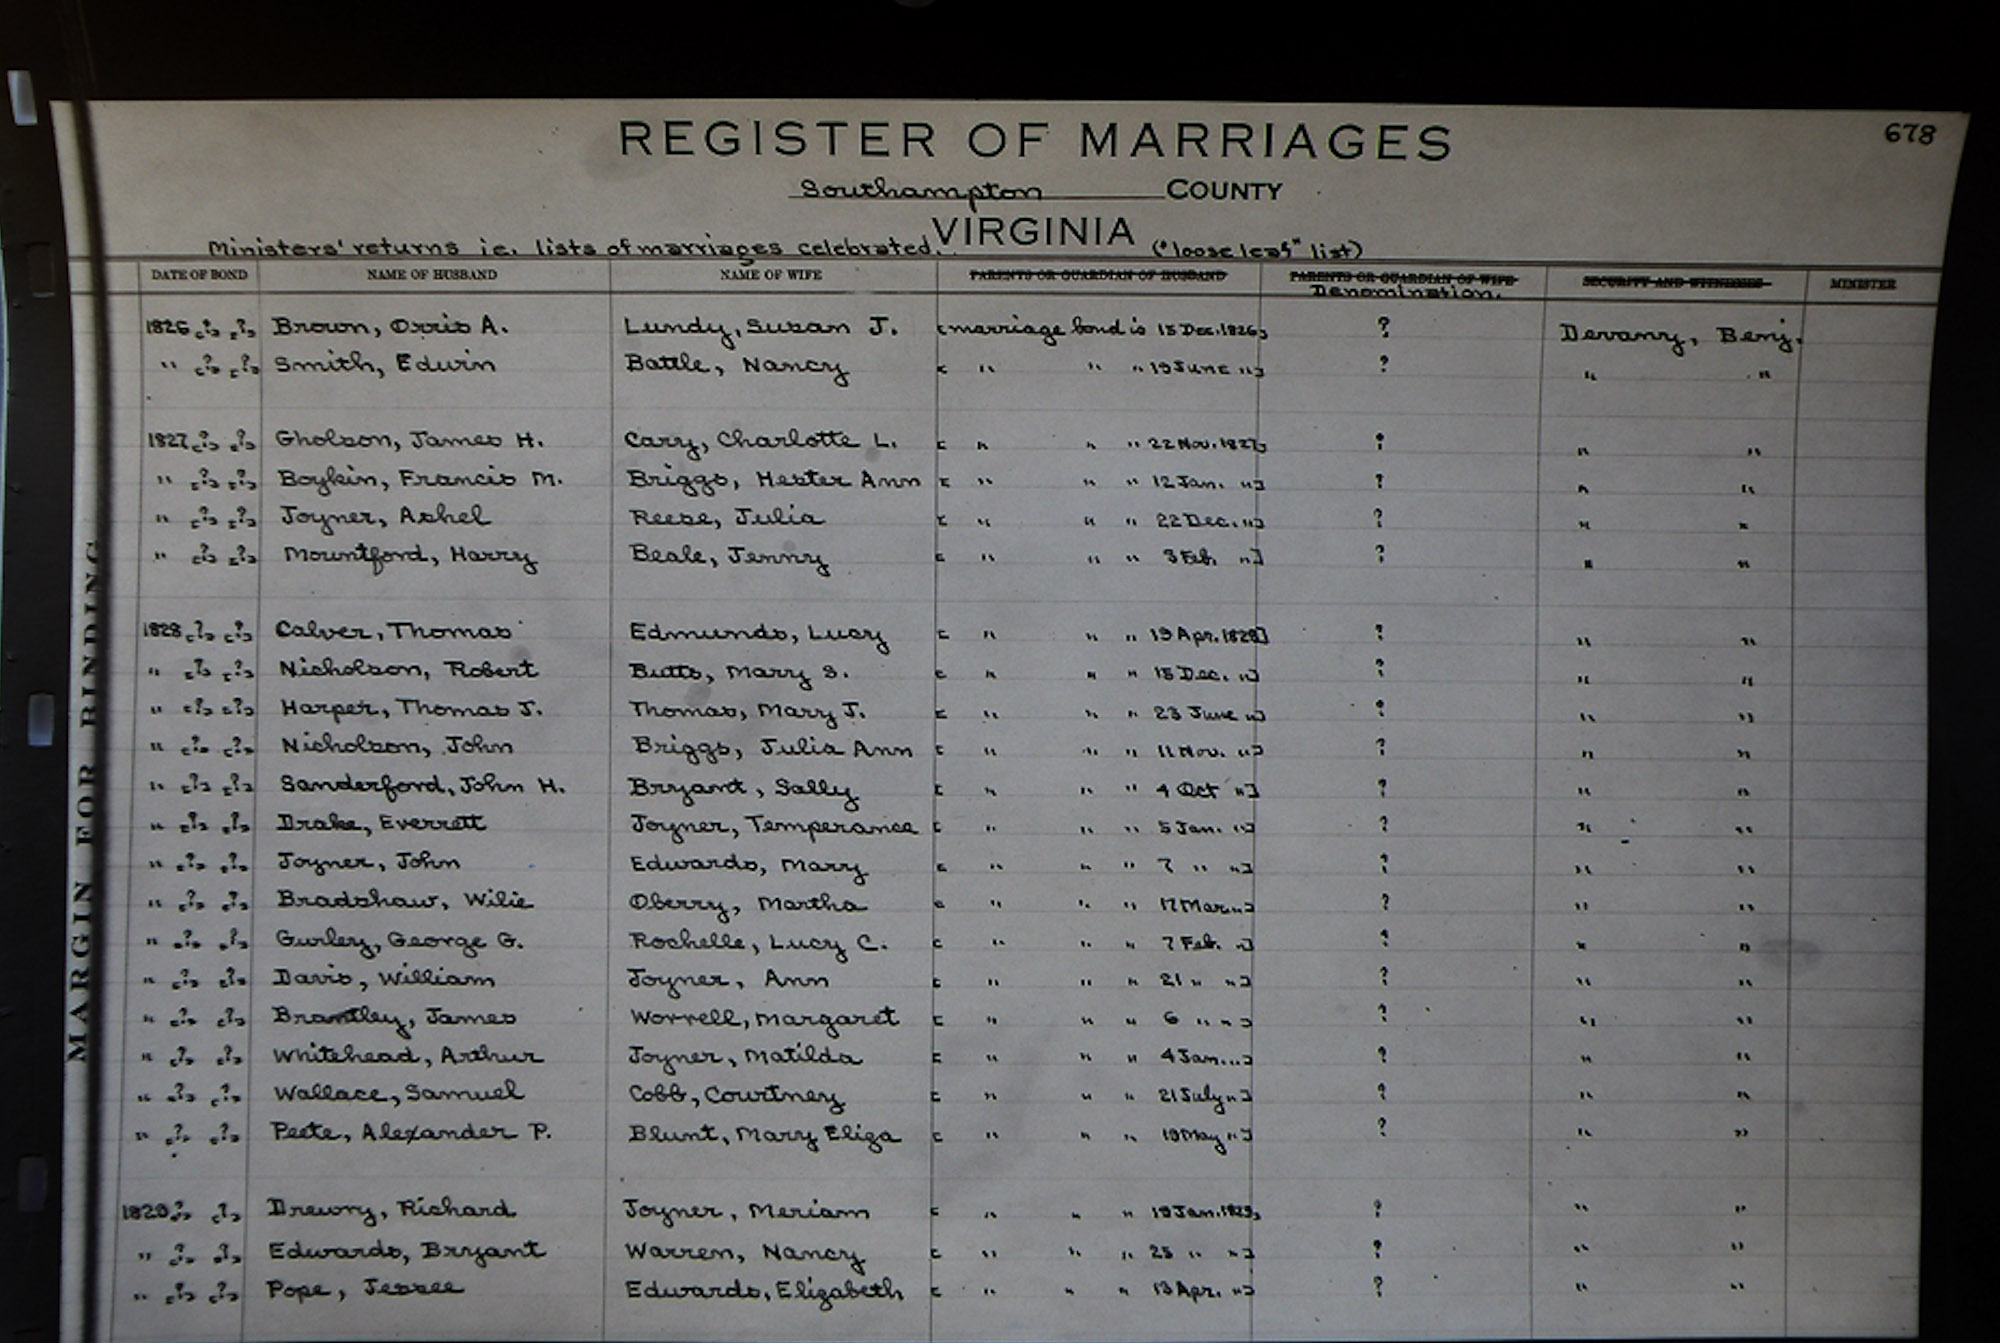 678
REGISTER OF MARRIAGES
Southampton COUNTY
VIRGINIA
Ministers' returns i.e. lists of marriages celebrated. ("loose leaf" list)
DATE OF BOND NAME OF HUSBAND NAME OF WIFE PARENTS OR GUARDIAN OF HUSBAND PARENTS OR GUARDIAN OF WIFE SECURITY AND WITNESSES MINISTER
Denomination.
1826 [?] [?] Brown, Orris A. Lundy, Susan J. [marriage bond is 15 Dec. 1826] ? Devany, Benj.
" [?] [?] Smith, Edwin Battle, Nancy [ " " " 19 June "] ? " "
1827 [?] [?] Gholson, James H. Cary, Charlotte L. [ " " " 22 Nov. 1827] ? " "
" [?] [?] Boykin, Francis M. Briggs, Hester Ann [ " " " 12 Jan. "] ? " "
" [?] [?] Joyner, Ashel Reese, Julia [ " " " 22 Dec. "] ? " "
" [?] [?] Mountford, Harry Beale, Jenny [ " " " 3 Feb. "] ? " "
1828 [?] [?] Calver, Thomas Edmunds, Lucy [ " " " 19 Apr. 1828] ? " "
" [?] [?] Nicholson, Robert Butts, Mary S. [ " " " 15 Dec. "] ? " "
" [?] [?] Harper, Thomas J. Thomas, Mary J. [ " " " 23 June "] ? " "
" [?] [?] Nicholson, John Briggs, Julia Ann [ " " " 11 Nov. "] ? " "
" [?] [?] Sanderford, John H. Bryant, Sally [ " " " 4 Oct "] ? " "
" [?] [?] Drake, Everrett Joyner, Temperance [ " " " 5 Jan. "] ? " "
" [?] [?] Joyner, John Edwards, Mary [ " " " 7 " "] ? " "
" [?] [?] Bradshaw, Wilie Oberry, Martha [ " " " 17 Mar. "] ? " "
" [?] [?] Gurley, George G. Rochelle, Lucy C. [ " " " 7 Feb. "] ? " "
" [?] [?] Davis, William Joyner, Ann [ " " " 21 " "] ? " "
" [?] [?] Brantley, James Worrell, Margaret [ " " " 6 " "] ? " "
" [?] [?] Whitehead, Arthur Joyner, Matilda [ " " " 4 Jan. "] ? " "
" [?] [?] Wallace, Samuel Cobb, Courtney [ " " " 21 July "] ? " "
" [?] [?] Peete, Alexander P. Blunt, Mary Eliza [ " " " 19 May "] ? " "
1829 [?] [?] Drewry, Richard Joyner, Meriam [ " " " 19 Jan. 1829] ? " "
" [?] [?] Edwards, Bryant Warren, Nancy [ " " " 25 " "] ? " "
" [?] [?] Pope, Jessee Edwards, Elizabeth [ " " " 13 Apr. "] ? " "
MARGIN FOR BINDING